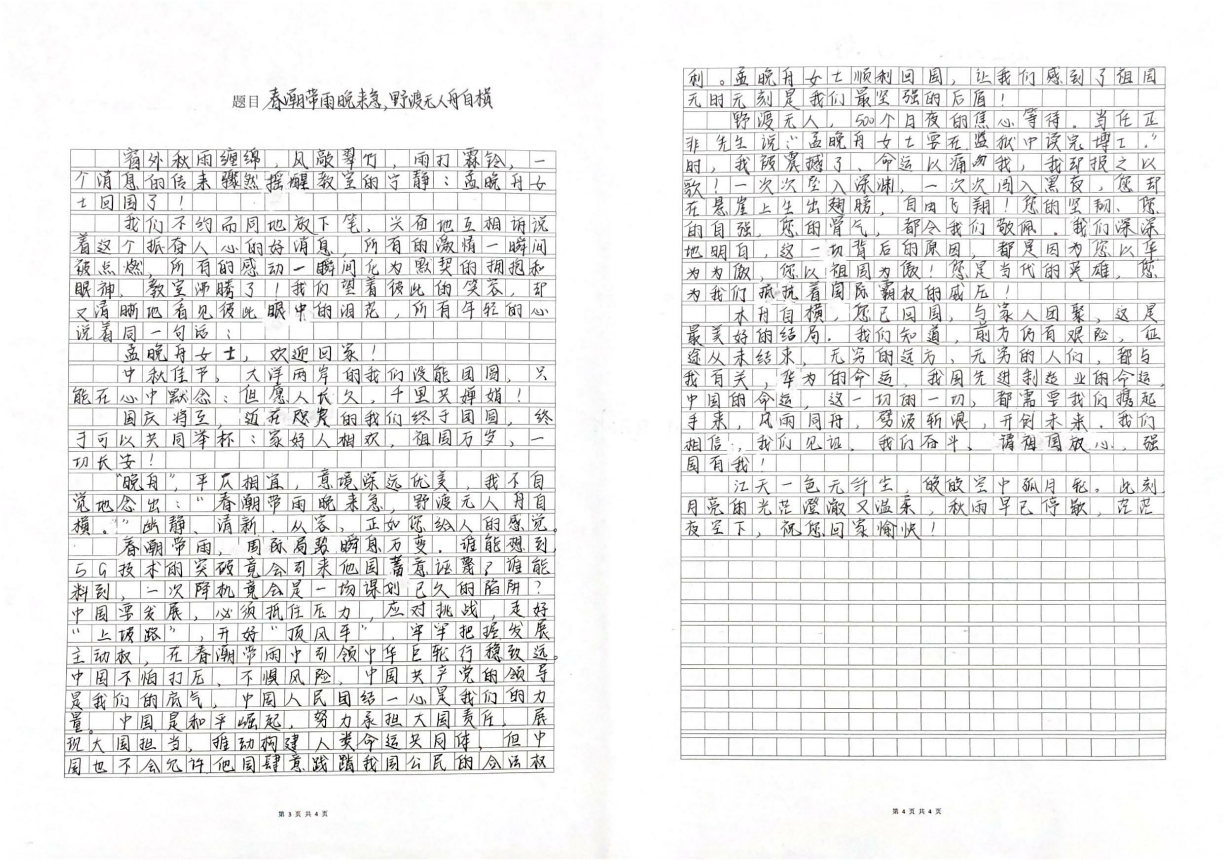 题目 春潮带雨晚来急,野渡无人舟自横
窗外秋雨缠绵，风敲翠竹，雨打霖铃，一
个消息的传来骤然摇醒教室的宁静：孟晚舟女
士回国了！
我们不约而同地放下笔，兴奋地互相诉说
着这个振奋人心的好消息，所有的激情一瞬间
被点燃，所有的感动一瞬间化为默契的拥抱和
眼神，教室沸腾了！我们望着彼此的笑容，却
又清晰地看见彼此眼中的泪花，所有年轻的心
说着同一句话：
孟晚舟女士，欢迎回家！
中秋佳节，大洋两岸的我们没能团圆，只
能在心中默念：但愿人长久，千里共婵娟！
国庆将至，近在咫尺的我们终于团圆，终
于可以共同举杯：家好人相欢，祖国万岁，一
切长安！
“晚舟”，平仄相宜，意境深远优美，我不自
觉地念出：“春潮带雨晚来急，野渡无人舟自
横。”幽静、清新、从容，正如您给人的感觉。
春潮带雨，国际局势瞬息万变．谁能想到，
5G技术的突破竟会引来他国蓄意诬蔑？谁能
料到，一次降机竟会是一场谋划已久的陷阱？
中国要发展，必须抵住压力，应对挑战，走好
“上坡路”，开好“顶风车”，牢牢把握发展
主动权，在春潮带雨中引领中华巨轮行稳致远。
中国不怕打压、不惧风险，中国共产党的领导
是我们的底气，中国人民团结一心是我们的力
量。中国是和平崛起，努力承担大国责任，展
现大国担当，推动构建人类命运共同体，但中
国也不会允许他国肆意践踏我国公民的合法权
第 3 页 共 4 页
利。孟晚舟女士顺利回国，让我们感到了祖国
无时无刻是我们最坚强的后盾！
野渡无人，500个日夜的焦心等待．当任正
非先生说：“孟晚舟女士要在监狱中读完博士。”
时，我被震撼了、命运以痛吻我，我却报之以
歌！一次次坠入深渊，一次次闯入黑夜，您却
在悬崖上生出翅膀，自由飞翔！您的坚韧、您
的自强，您的骨气，都令我们敬佩．我们深深
地明白，这一切背后的原因，都是因为您以华
为为傲，您以祖国为傲！您是当代的英雄，您
为我们抵抗着国际霸权的威压！
木舟自横，您已回国，与家人团聚，这是
最美好的结局．我们知道，前方仍有艰险，征
途从未结束，无穷的远方、无穷的人们，都与
我有关，华为的命运，我国先进制造业的命运，
中国的命运，这一切的一切，都需要我们携起
手来，风雨同舟，劈波斩浪，开创未来．我们
相信，我们见证．我们奋斗、请祖国放心，强
国有我！
江天一色无纤尘，皎皎空中孤月轮．此刻，
月亮的光芒澄澈又温柔，秋雨早已停歇，茫茫
夜空下，祝您回家愉快！
第 4 页 共 4 页